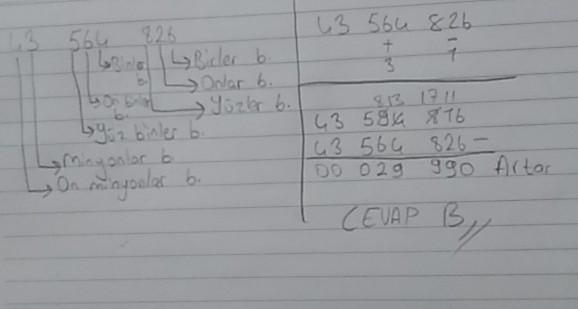 43 564 826
Birler b.
Onlar b.
Yüzler b.
Binler b.
On binler b.
Yüz binler b.
minyonlar b
On minyonlar b.
43 564 826
+ -
3 7
813 1711
43 594 816
43 564 826 -
00 029 990 Artar
CEVAP B //